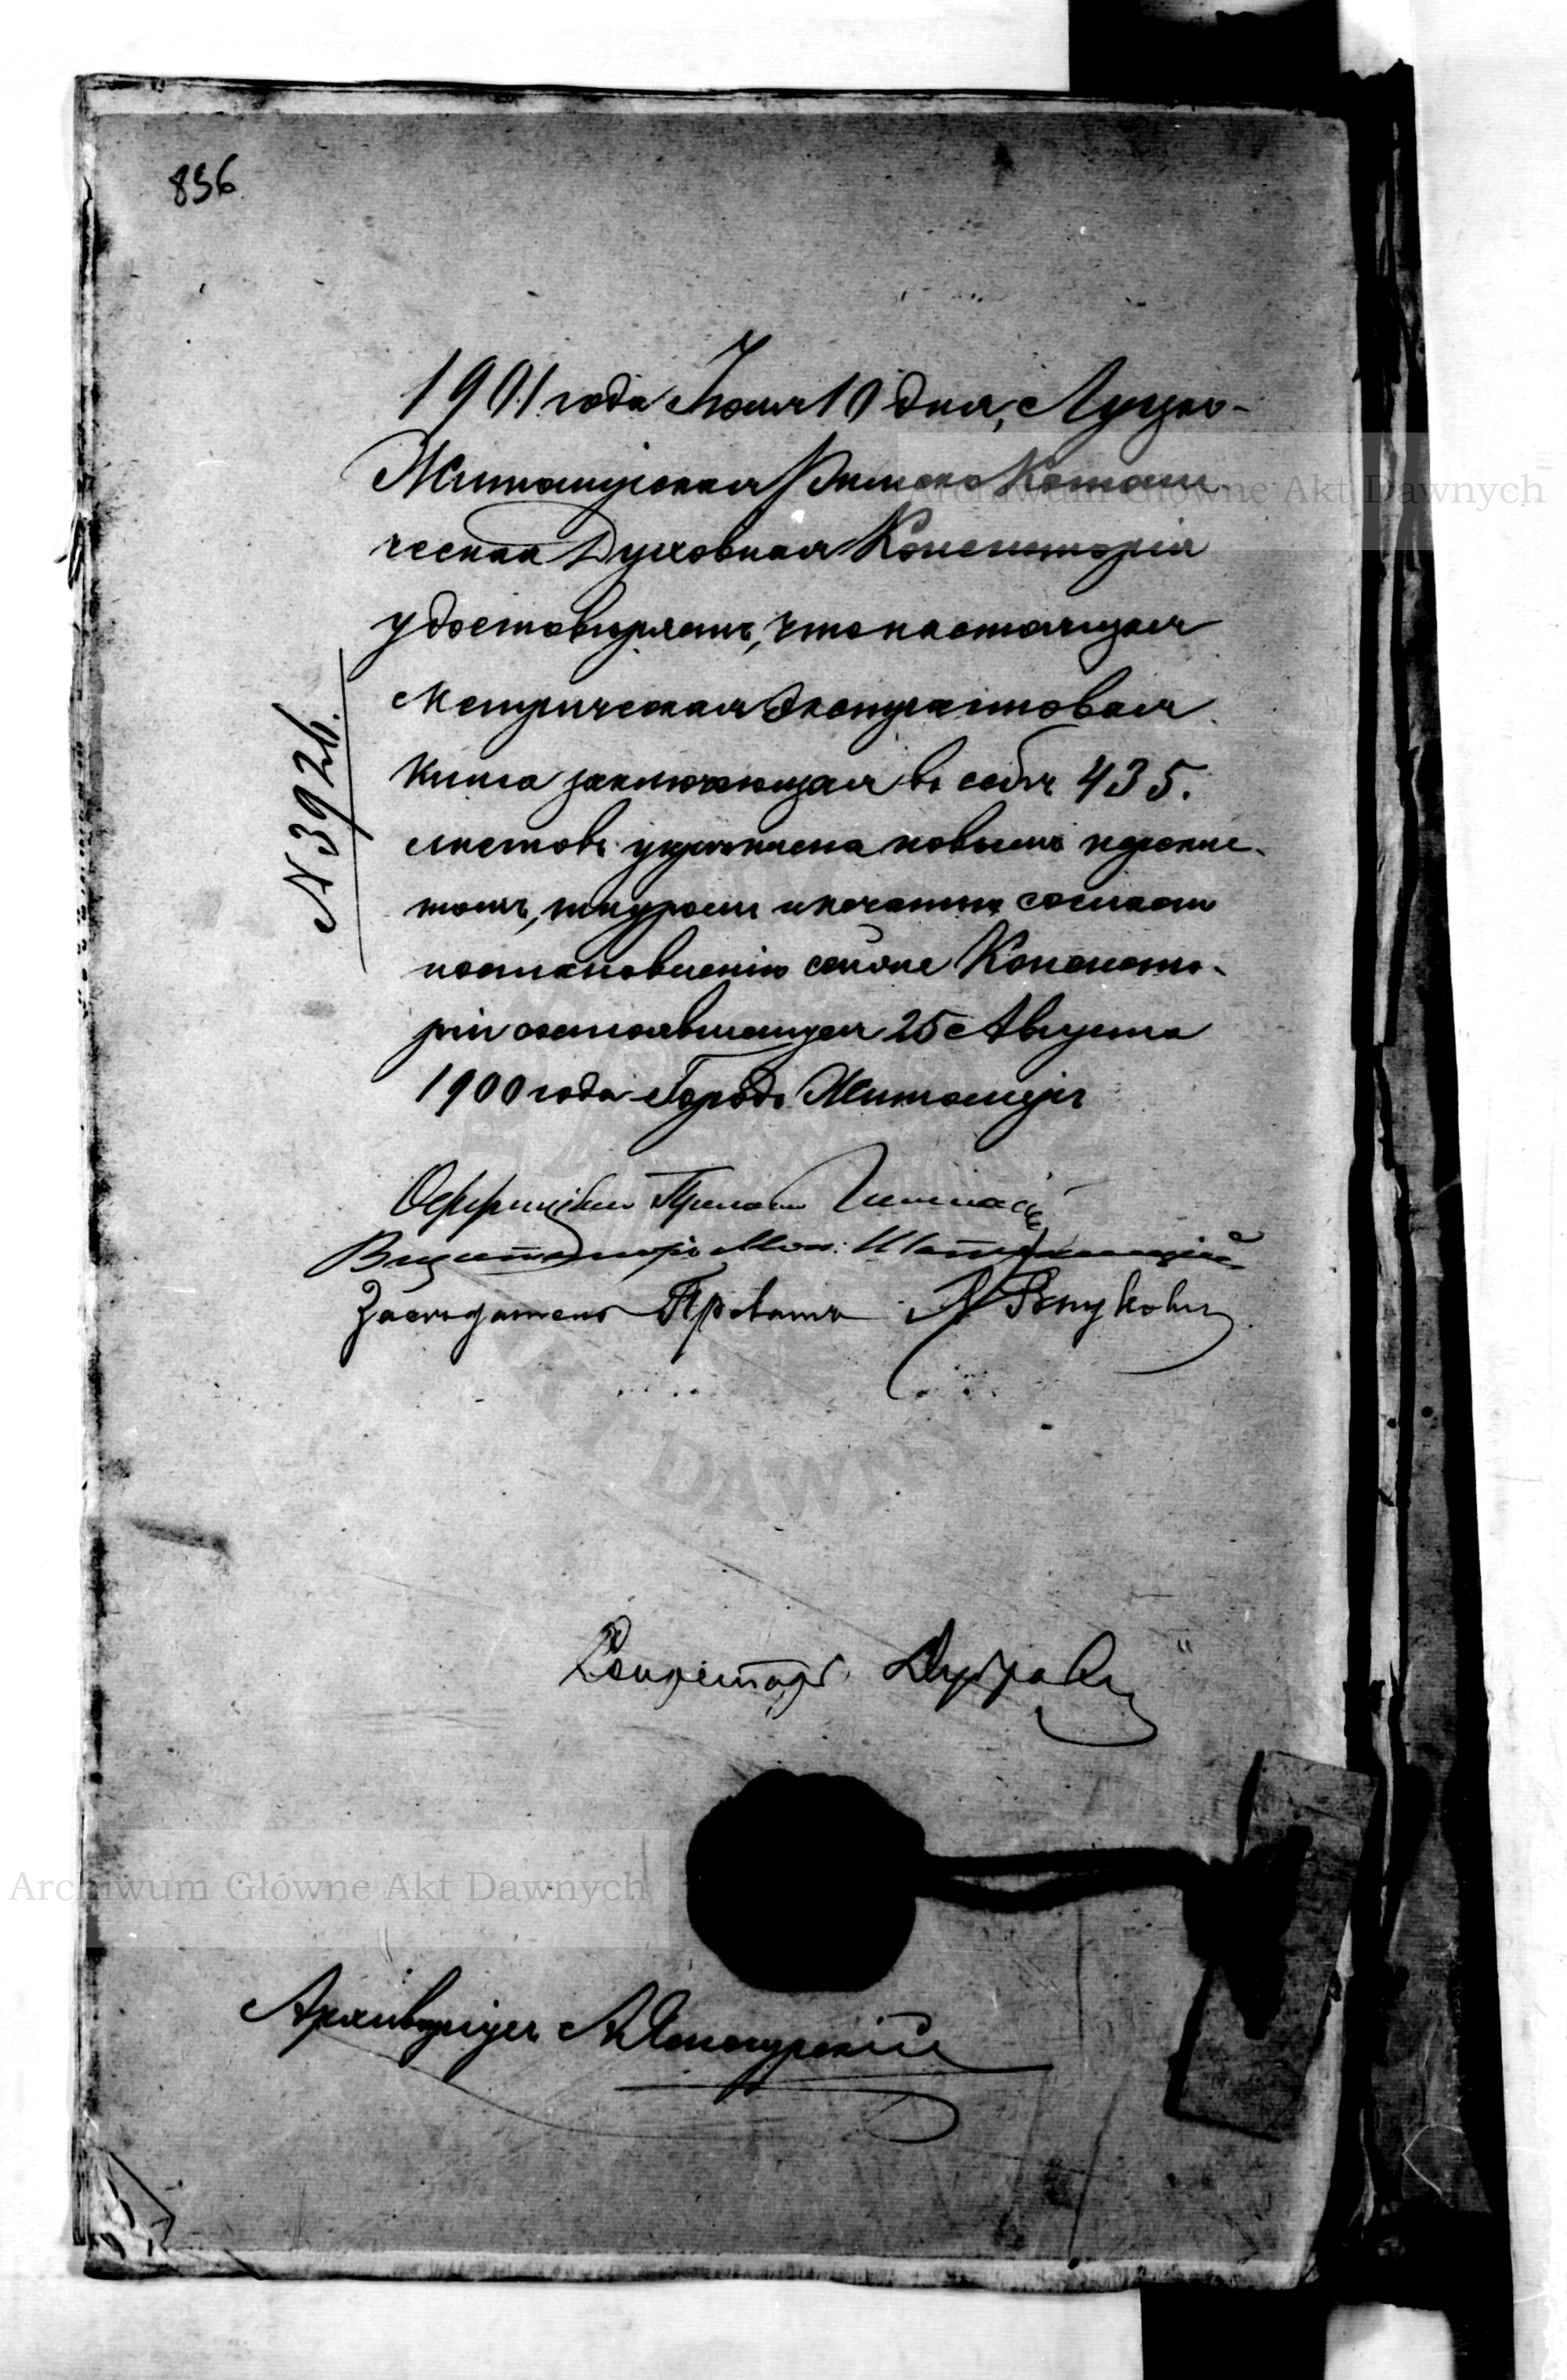 836
1901 года Іюля 10 дня, Луцко-
Житомірская Римско Католи
ческая Духовная Консисторія
удостовѣряетъ, что настоящая
метрическая экстрактовая
книга заключающая въ себѣ 435.
листовъ укрѣплена новымъ перепле-
томъ, шнуромъ и печатью согласно
постановленію сей же Консисто-
ріи состоявшемуся 25 Августа
1900 года Городъ Житоміръ
№ 3926.
Оффиціалъ Прелатъ
Визитаторъ Мон:
Засѣдатель
Секретарь
Архиваріусъ
Archiwum Główne Akt Dawnych
Archiwum Główne Akt Dawnych